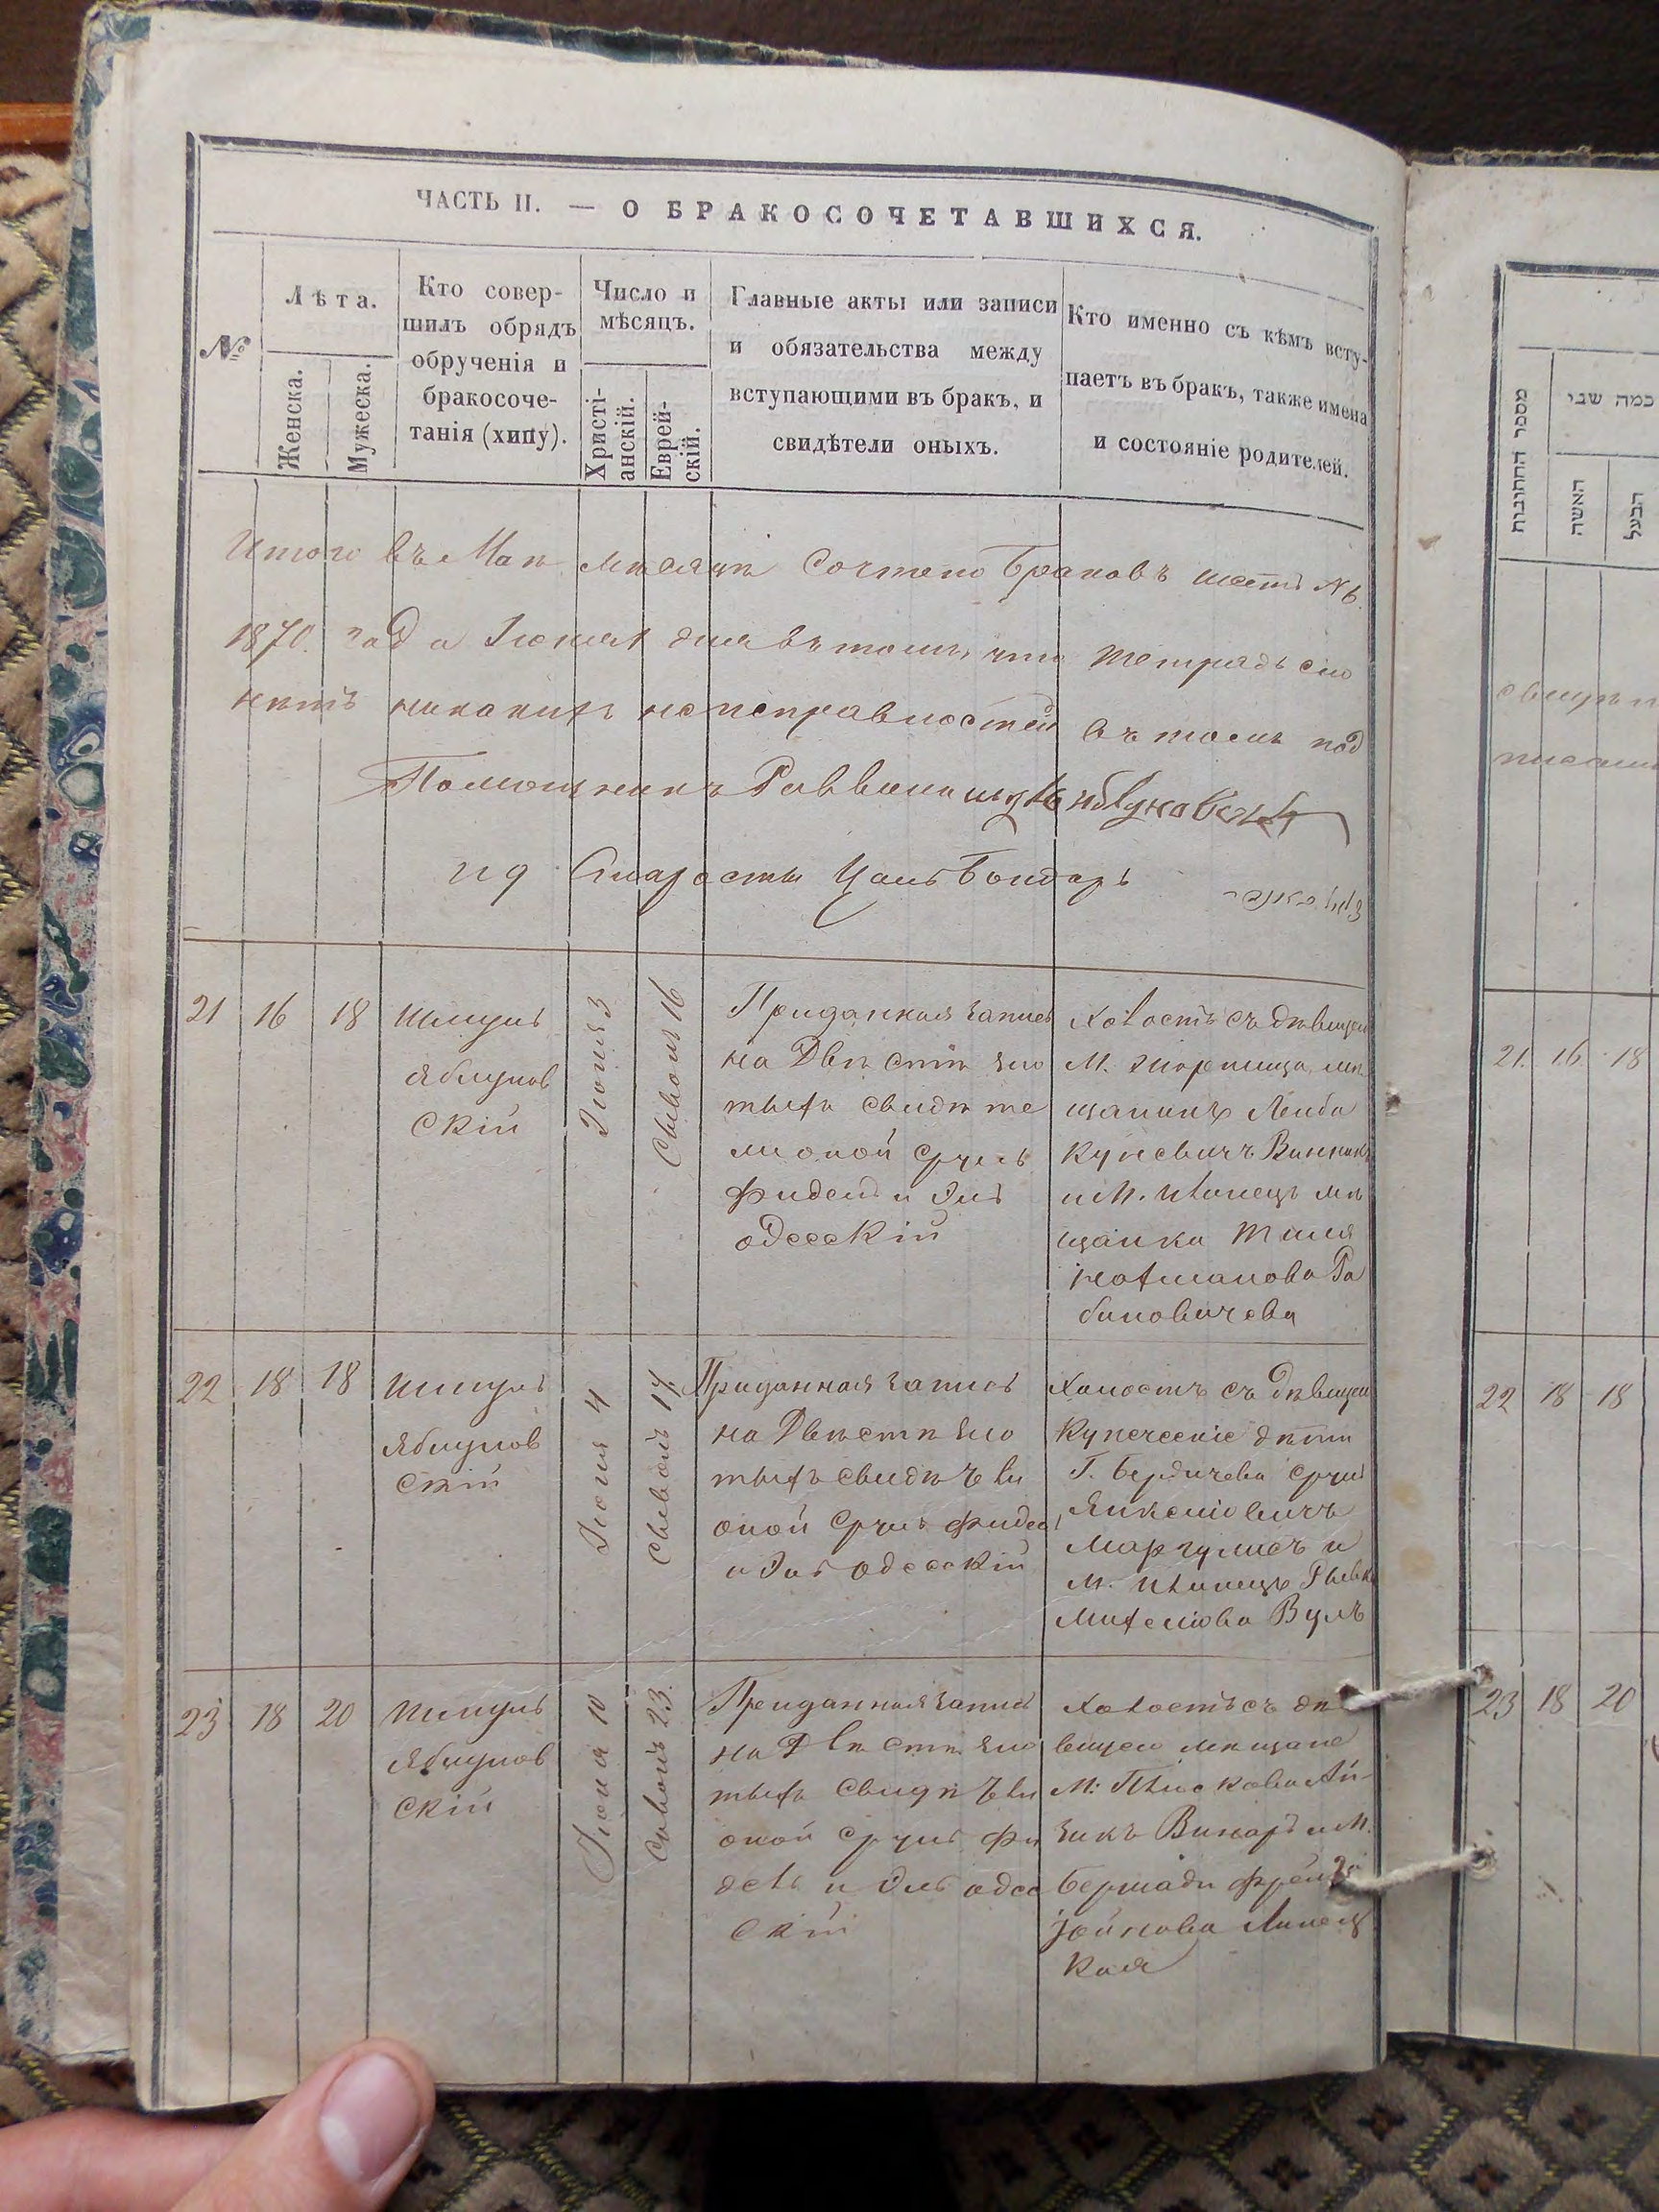 ЧАСТЬ II. — О БРАКОСОЧЕТАВШИХСЯ.
№
Лѣта.
Женска.
Мужеска.
Кто совер-
шилъ обрядъ
обрученія и
бракосоче-
танія (хипу).
Число и
мѣсяцъ.
Христі-
анскій.
Еврей-
скій.
Главные акты или записи
и обязательства между
вступающими въ бракъ, и
свидѣтели оныхъ.
Кто именно съ кѣмъ всту-
паетъ въ бракъ, также имена
и состояніе родителей.
Итого въ Маѣ мѣсяцѣ сочтено Браковъ шесть № 6.
1870. года Іюня 1 дня въ томъ, что тетрадь сию
нѣтъ никакихъ неисправностей въ томъ под
Помощникъ Раввина
ид Старосты Бондарь
21
16
18
Шмуль
Яблунов
Скій
Іюня 3
Сывонъ 16
Приданная запись
на Двѣ стѣ зло
тыхъ свидѣте
ли оной Сруль
Фидель и Эль
Одесскій
Холостъ съ дѣвицей
мѣ
щанинъ Лейба
и М. мѣ
щанка
Ра
биновичева
22
18
18
Шмуль
Яблунов
Скій
Іюня 4
Сывонъ 17.
Приданная запись
на Двѣстѣ зло
тыхъ свидѣтели
оной Сруль Фидель
и Эль Одесскій
Холостъ съ дѣвицей
Купеческіе дѣти
Г. Бердичева Сруль
Янкелювичъ
Маргулисъ и
М.
Вулъ
23
18
20
Шмуль
Яблунов
Скій
Іюня 10
Сывонъ 23.
Приданная запись
на Двѣ стѣ зло
тыхъ свидѣтели
оной Сруль Фи
дель и Эль Одес
скій
Холостъ съ дѣ
вицею мѣщане
М: Ай-
зикъ Винаръ и М.
Бершади
Липец
Кая
מספר החתונות
כמה שני
האשה
הבעל
21. 16. 18
22 18 18
23 18 20